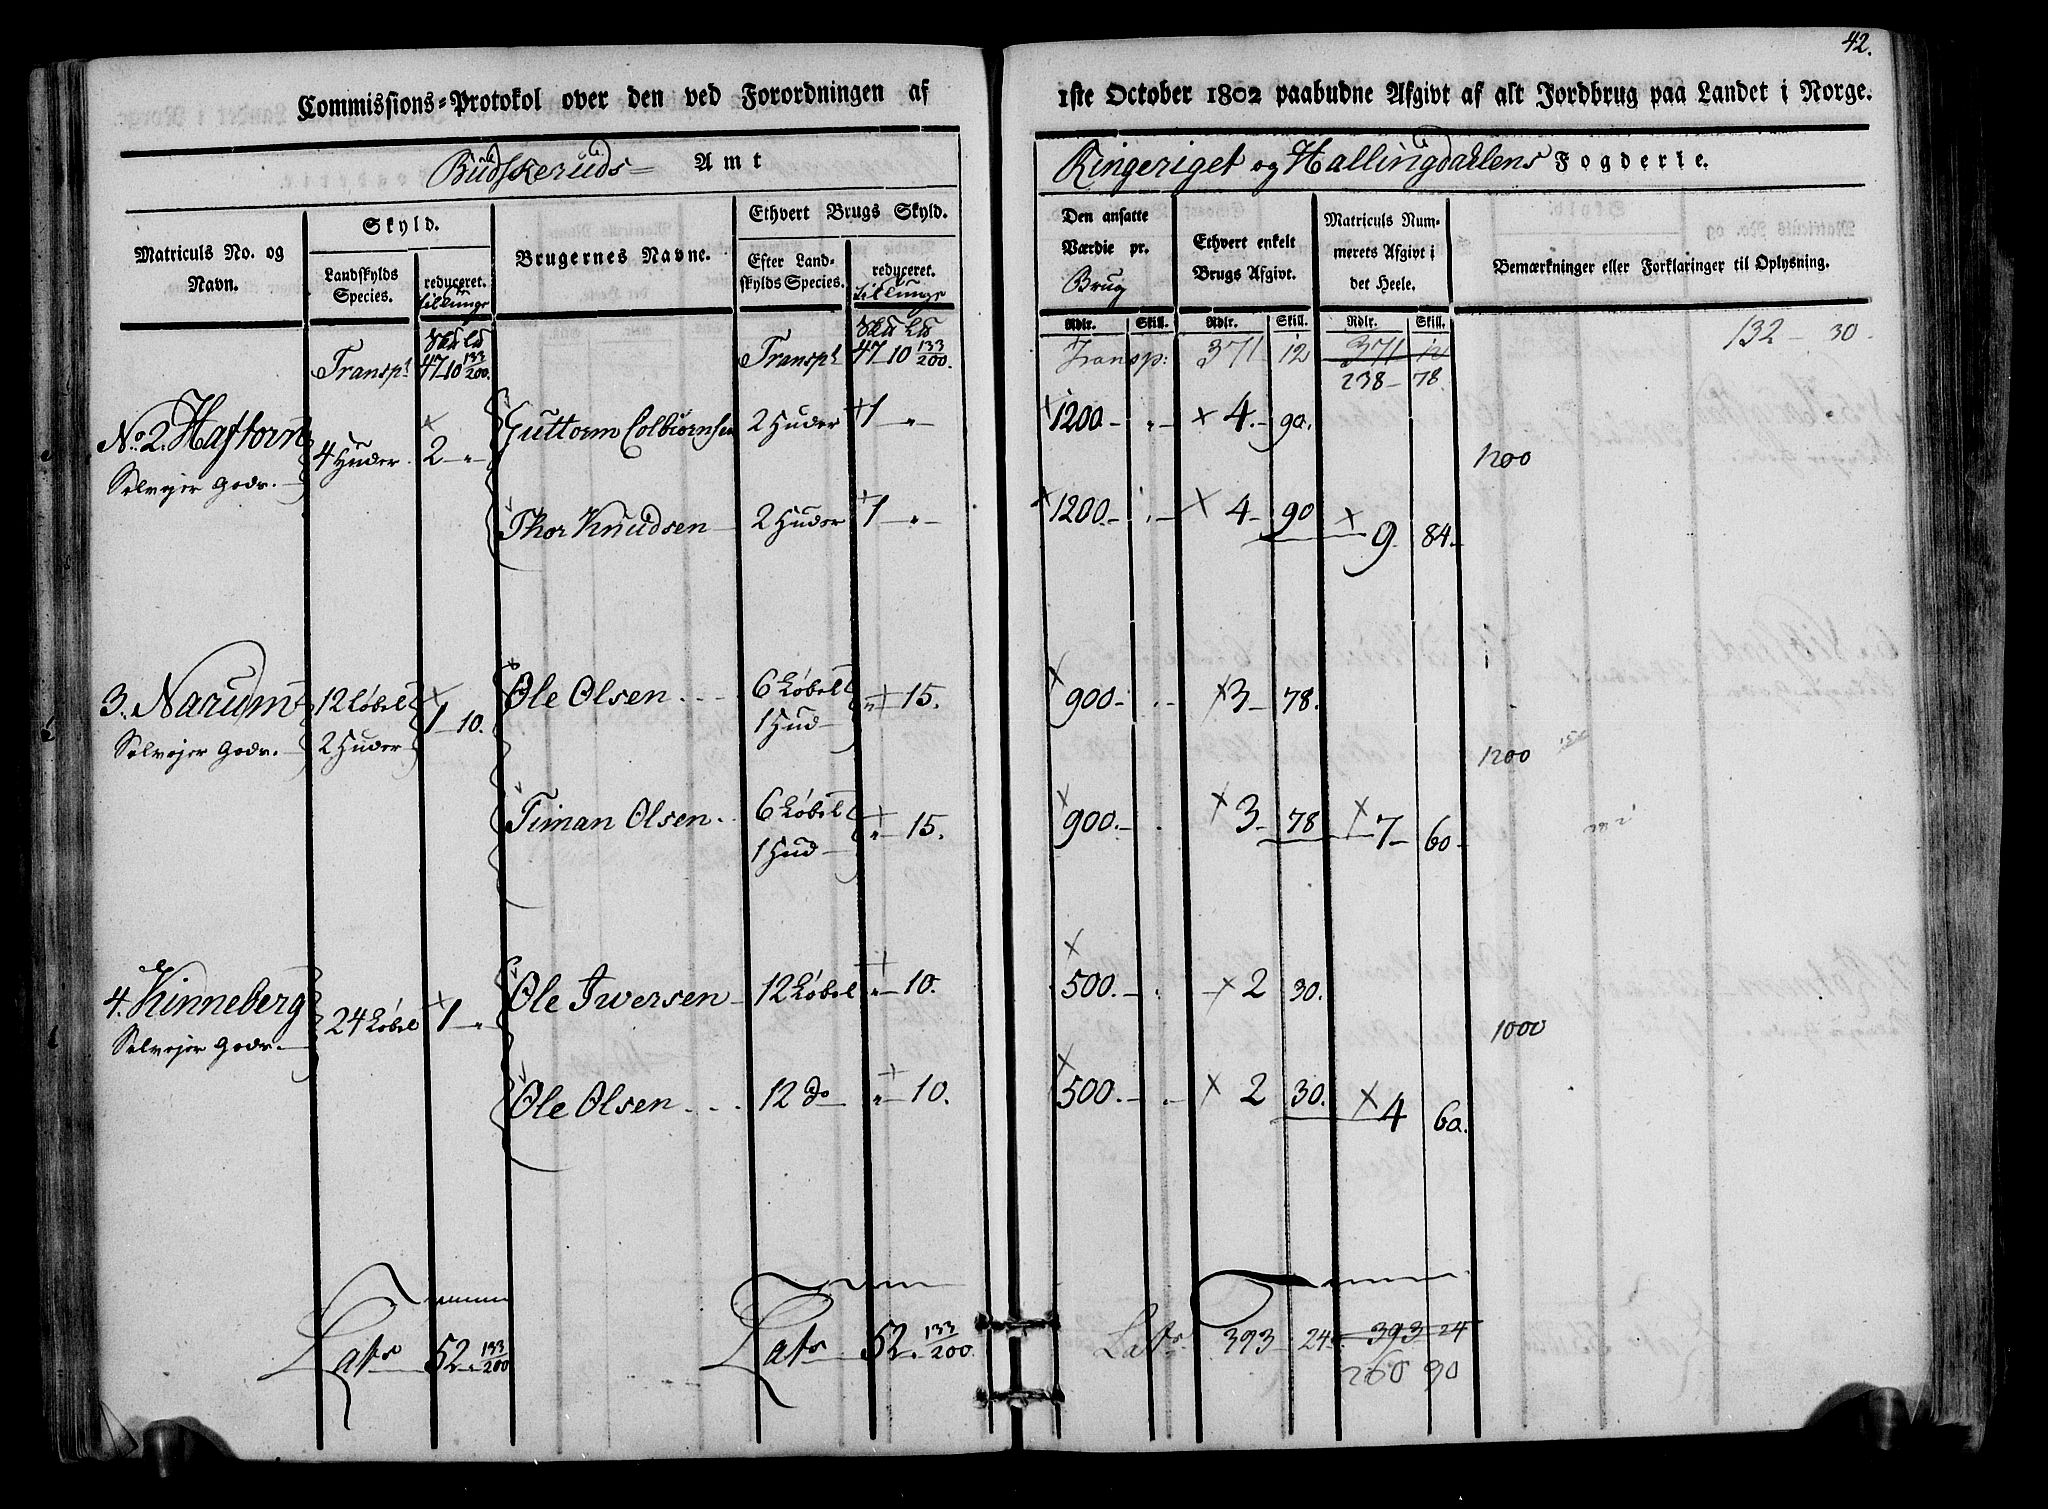 42.
Commissions-Protokol over den ved Forordningen af
1ste October 1802 paabudne Afgivt af alt Jordbrug paa Landet i Norge.
Budskeruds Amt
Ringeriget og Hallingdahlens Fogderie.
Matriculs No. og Navn.
Skyld.
Landskylds Species.
reduceret.
Brugernes Navne.
Ethvert Brugs Skyld.
Efter Landskylds Species.
reduceret.
Den ansatte Værdie pr. Brug
Ethvert enkelt Brugs Afgivt.
Matriculs Nummerets Afgivt i det Heele.
Bemærkninger eller Forklaringer til Oplysning.
Rdlr. Skill. Rdlr. Skill. Rdlr. Skill.
Transpt 47 10 133/200. Transpt 47 10 133/200. Transp: 371 12 371 12 132 - 30.
238 - 78.
No. 2. Haftorn 4 Huder 2 - " - Guttorm Colbiørnsen 2 Huder 1 - " - 1200 - " - 4 - 90.
Selvejer Gods. 1200
Thor Knudsen 2 Huder 1 - " - 1200 - " - 4 - 90 9 84.
3. Narum 12 Løbel 1 - 10. Ole Olsen 6 Løbel " - 15. 900 - " - 3 - 78.
Selvejer Gods. 2 Huder 1 Hud 1200
Timan Olsen 6 Løbel " - 15. 900 - " 3 - 78 7 - 60
1 Hud
4. Kinneberg 24 Løbel 1 - " Ole Iwersen 12 Løbel " - 10. 500 - " - 2 30.
Selvejer Gods. 1000
Ole Olsen 12 do " - 10. 500 - " - 2 30. 4 60.
Lats 52 - 133/200 Lats 52 - 133/200. Lats 393 - 24. 393 24
260 90